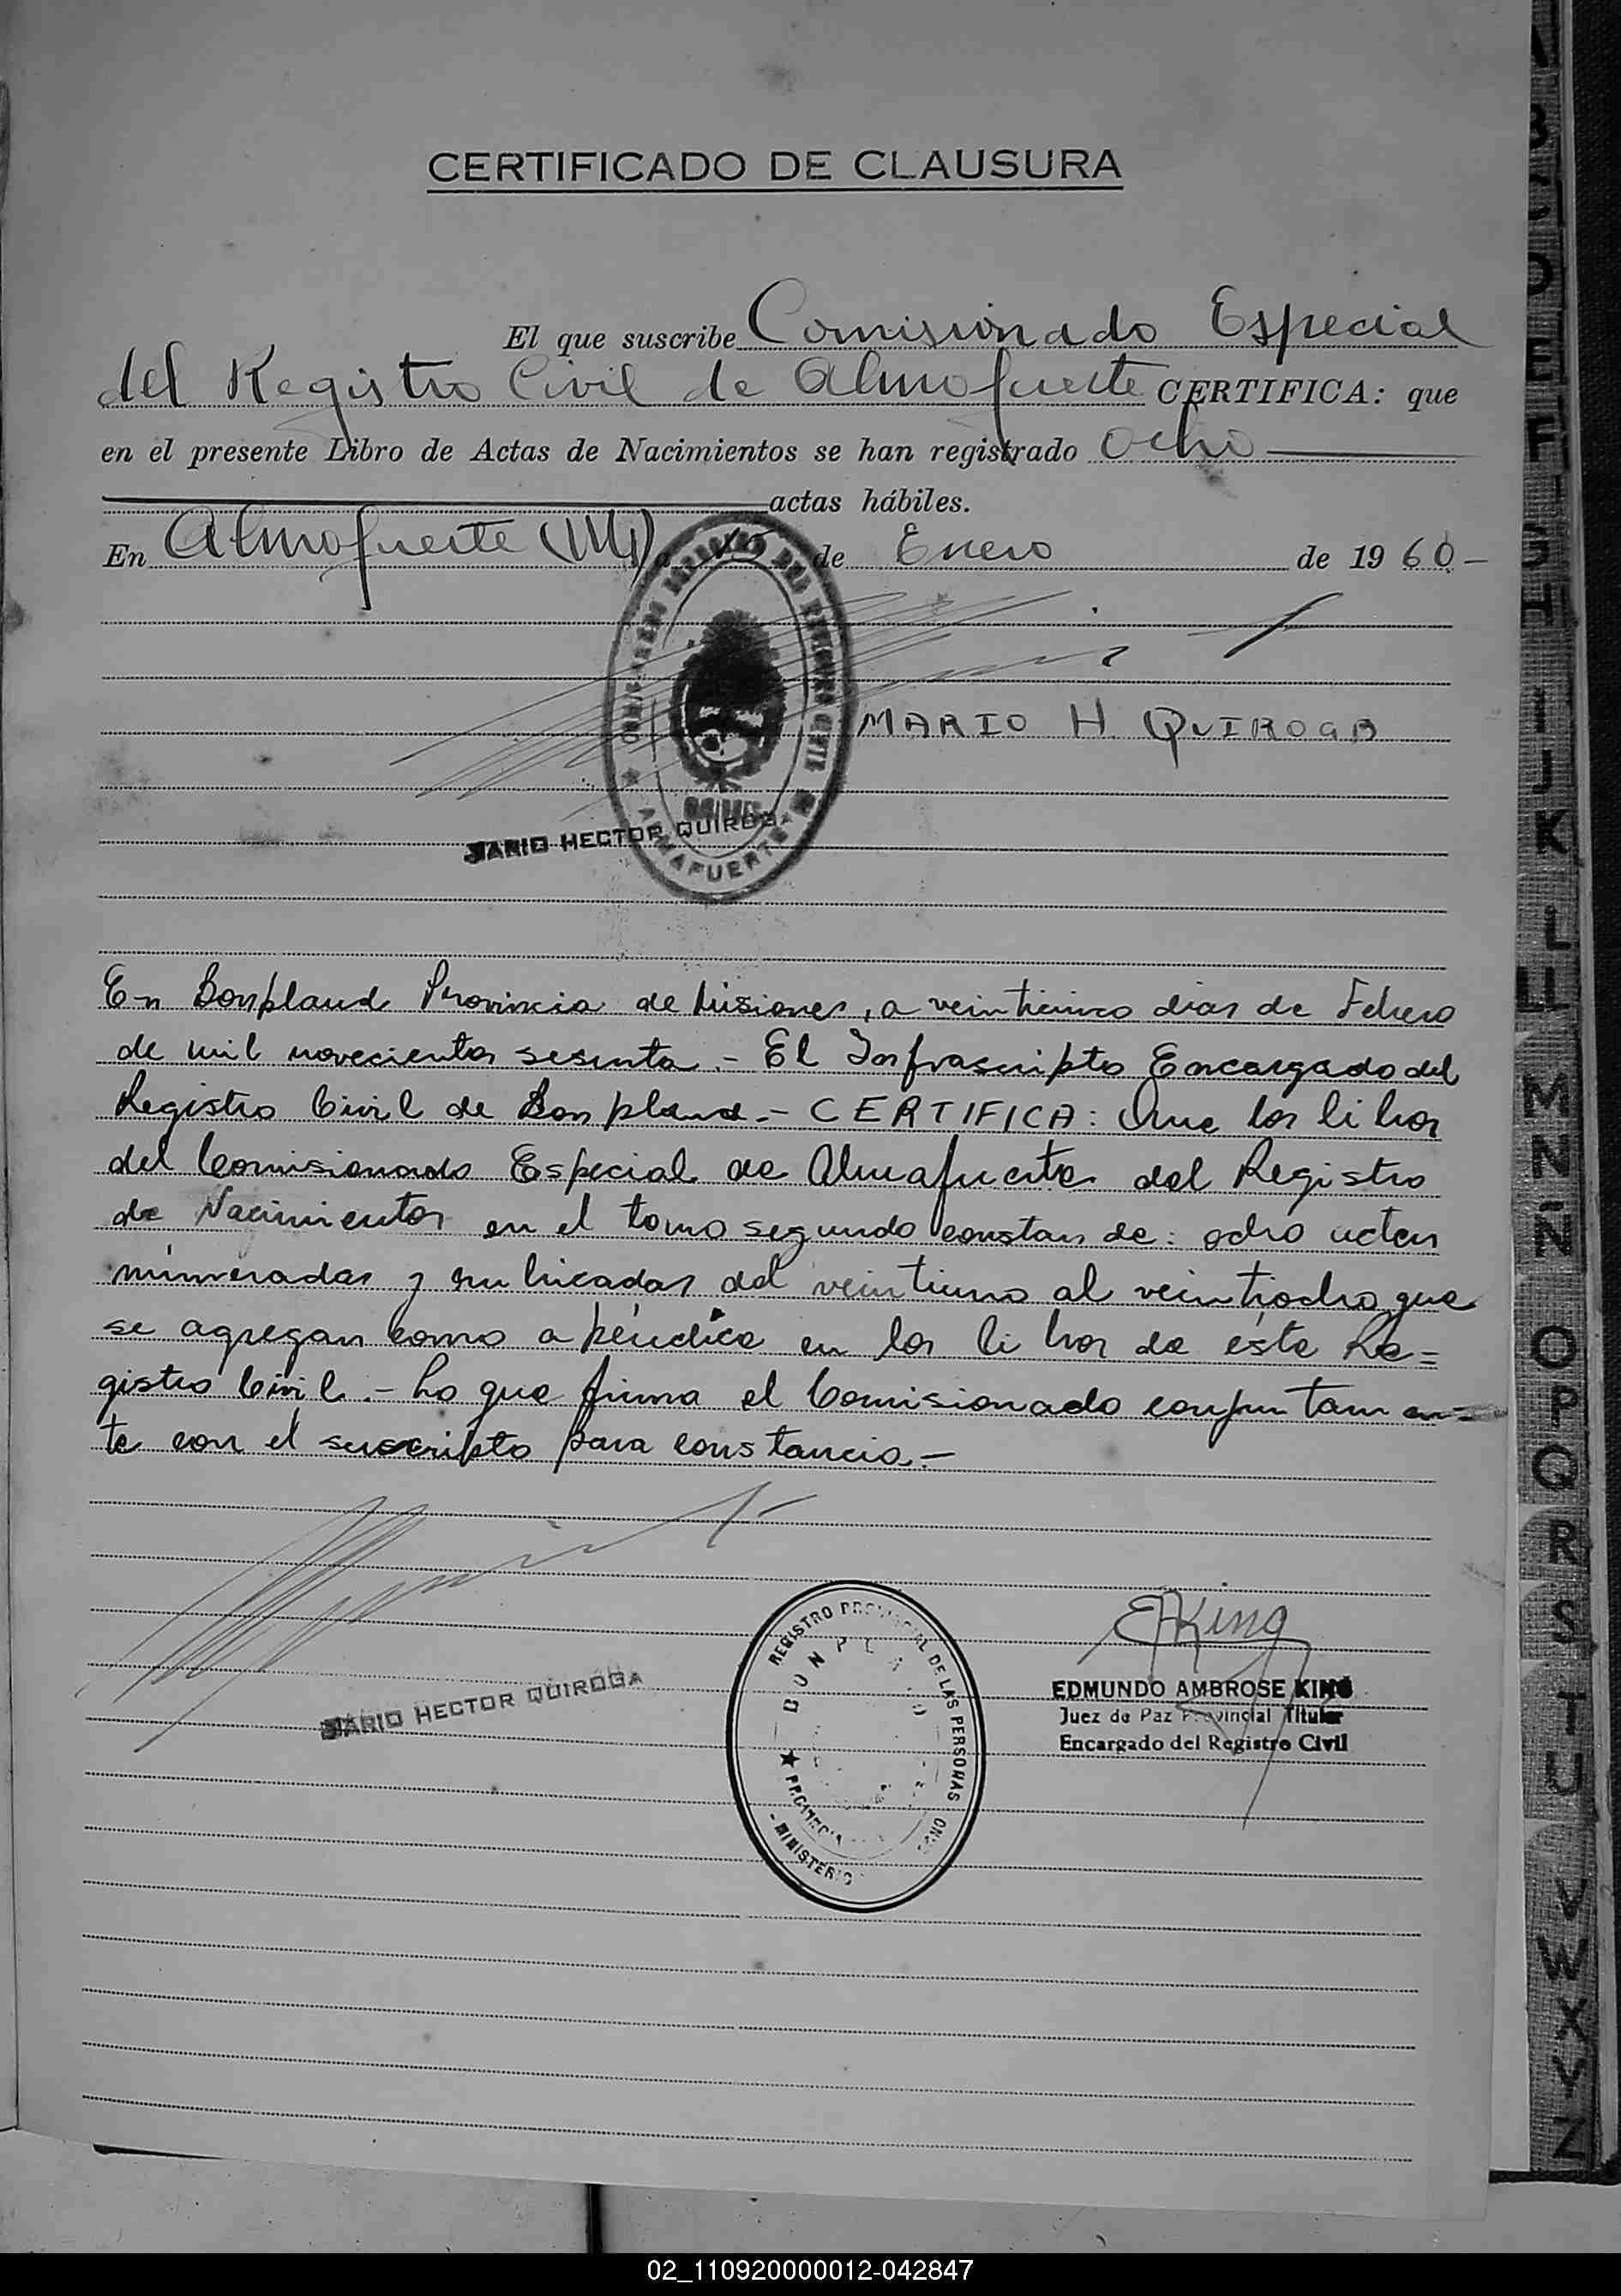 CERTIFICADO DE CLAUSURA
El que suscribe Comisionado Especial
del Registro Civil de Almafuerte CERTIFICA: que
en el presente Libro de Actas de Nacimientos se han registrado Ocho
actas hábiles.
En Almafuerte de Enero de 1960-
MARIO H QUIROGA
MARIO HECTOR QUIROGA
ALMAFUERTE
En Bonpland Provincia de Misiones, a veinticinco dias de Febrero
de mil novecientos sesenta.- El Infrascripto Encargado del
Registro Civil de Bonpland.- CERTIFICA: Que los libros
del Comisionado Especial de Almafuerte del Registro
de Nacimientos en el tomo segundo constan de: ocho actas
numeradas y rubricadas del veintiuno al veintiocho que
se agregan como apéndice en los libros de éste Re=
gistro Civil.- Lo que firma el Comisionado conjuntamen=
te con el suscripto para constancia.-
MARIO HECTOR QUIROGA
REGISTRO PROVINCIAL DE LAS PERSONAS
BONPLAND
MINISTERIO
EAKing
EDMUNDO AMBROSE KING
Juez de Paz Provincial Titular
Encargado del Registro Civil
A
B
C
D
E
F
G
H
I
J
K
L
LL
M
N
Ñ
O
P
Q
R
S
T
U
V
W
X
Y
Z
02_110920000012-042847